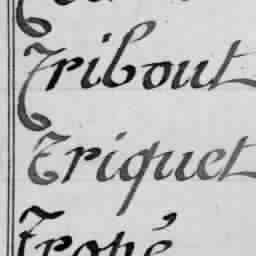 Tribout
Triquet
Tropé